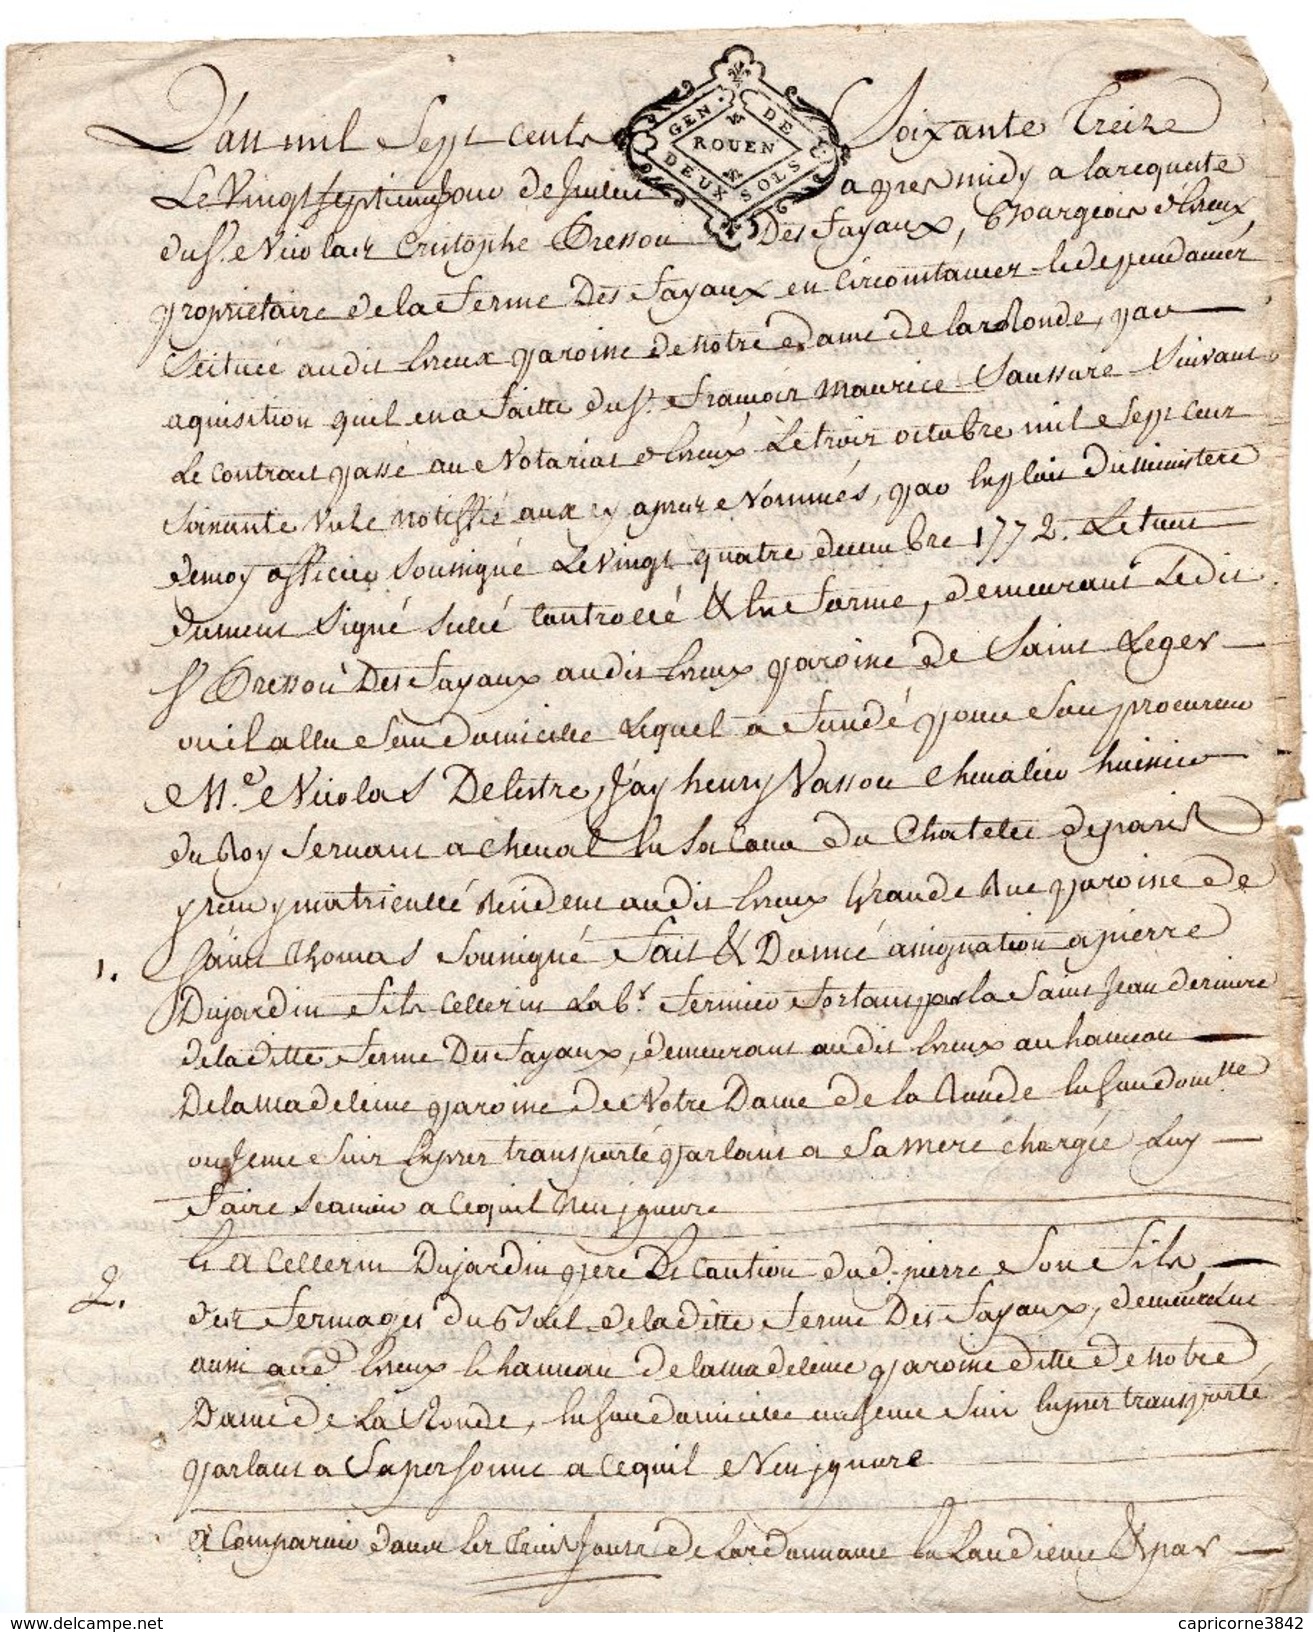 L'an mil Sept cents Soixante Treize
GEN. DE
ROUEN
DEUX SOLS
Le Vingt septieme jour de Juillet apres midy a la requeste
du Sr. Nicolas Cristophe Dressou Des Fayaux, Bourgeois d'Evreux
proprietaire de la Ferme Des Fayaux en Circonstances de dependances
Scituée audit Evreux paroisse de Notre Dame de la Ronde, par
aquisition quil en a Faitte du Sr. François Maurice Saussaré Suivant
Le Contrat passé au Notariat d'Evreux Le trois octobre mil Sept Cent
Soixante notiffié aux cy apres Nommés, par Exploit du Ministere
de moy officier Soussigné Le vingt quatre decembre 1772. Le tout
dument Signé Sellé Controllé & En Forme, demeurant Ledit
Sr Dressou Des Fayaux audit Evreux paroisse de Saint Leger
ou il a Elu Son domicille Lequel a Fondé pour Son procureur
Me. Nicolas Delestre, J'ay henry Vassou Chevalier huissier
du Roy Servant a Cheval En Sa Cour du Chatelet de paris
y reçu y matriculé Resident audit Evreux Grande Rue paroisse de
Saint Thomas Soussigné Fait & Donné assignation a pierre
1.
Dujardin Fils Cellerin Labr. Fermier Sortant par la Saint Jean derniere
de la ditte Ferme Des Fayaux, demeurant audit Evreux au hameau
De la Madeleine paroisse de Notre Dame de la Ronde En Son domlle
ou Je me Suis Exprez transporté parlant a Sa Mere chargée Luy
Faire Scavoir a Cequil N'en jgnore
Et a Cellerin Dujardin pere De Caution dud. pierre Son Fils,
2.
des Fermages du Bail de la ditte Ferme Des Fayaux, demeurant
aussi aud Evreux le hameau de la Madeleine paroisse ditte de Notre
Dame de La Ronde, En Son domicille ou Je me Suis Exprez transporté
parlant a Sa personne a Cequil N'en jgnore
A Comparoir dans Les Trois Jours de L'ordonnance En Laudience & par
capricorne3842
www.delcampe.net